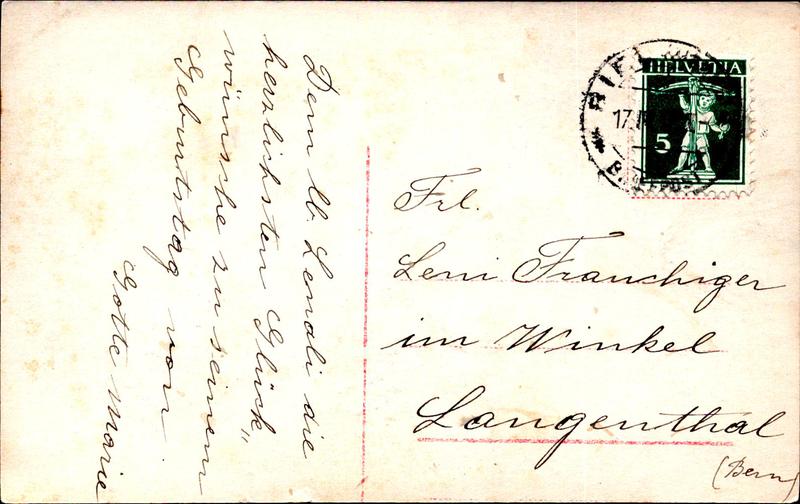 Dem lb. Lendli die
herzlichsten Glück„
wünsche zu seinem
Geburtstag von
Gotte Marie
HELVETIA
5
BIEL
17.
Frl.
Leni Franchiger
im Winkel
Langenthal
(Bern)